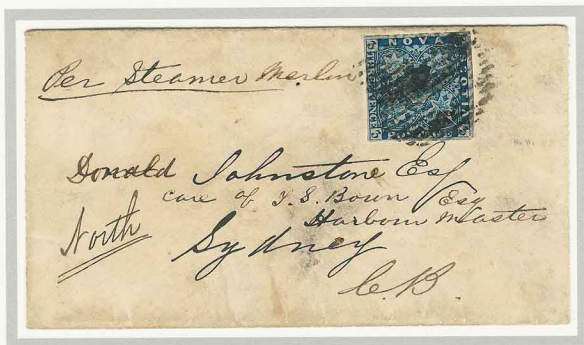 Per Steamer Merlin
NOVA SCOTIA
THREE PENCE
Donald Johnstone Esq
care of J. S. Bown Esq
Harbour Master
North
Sydney
C.B.